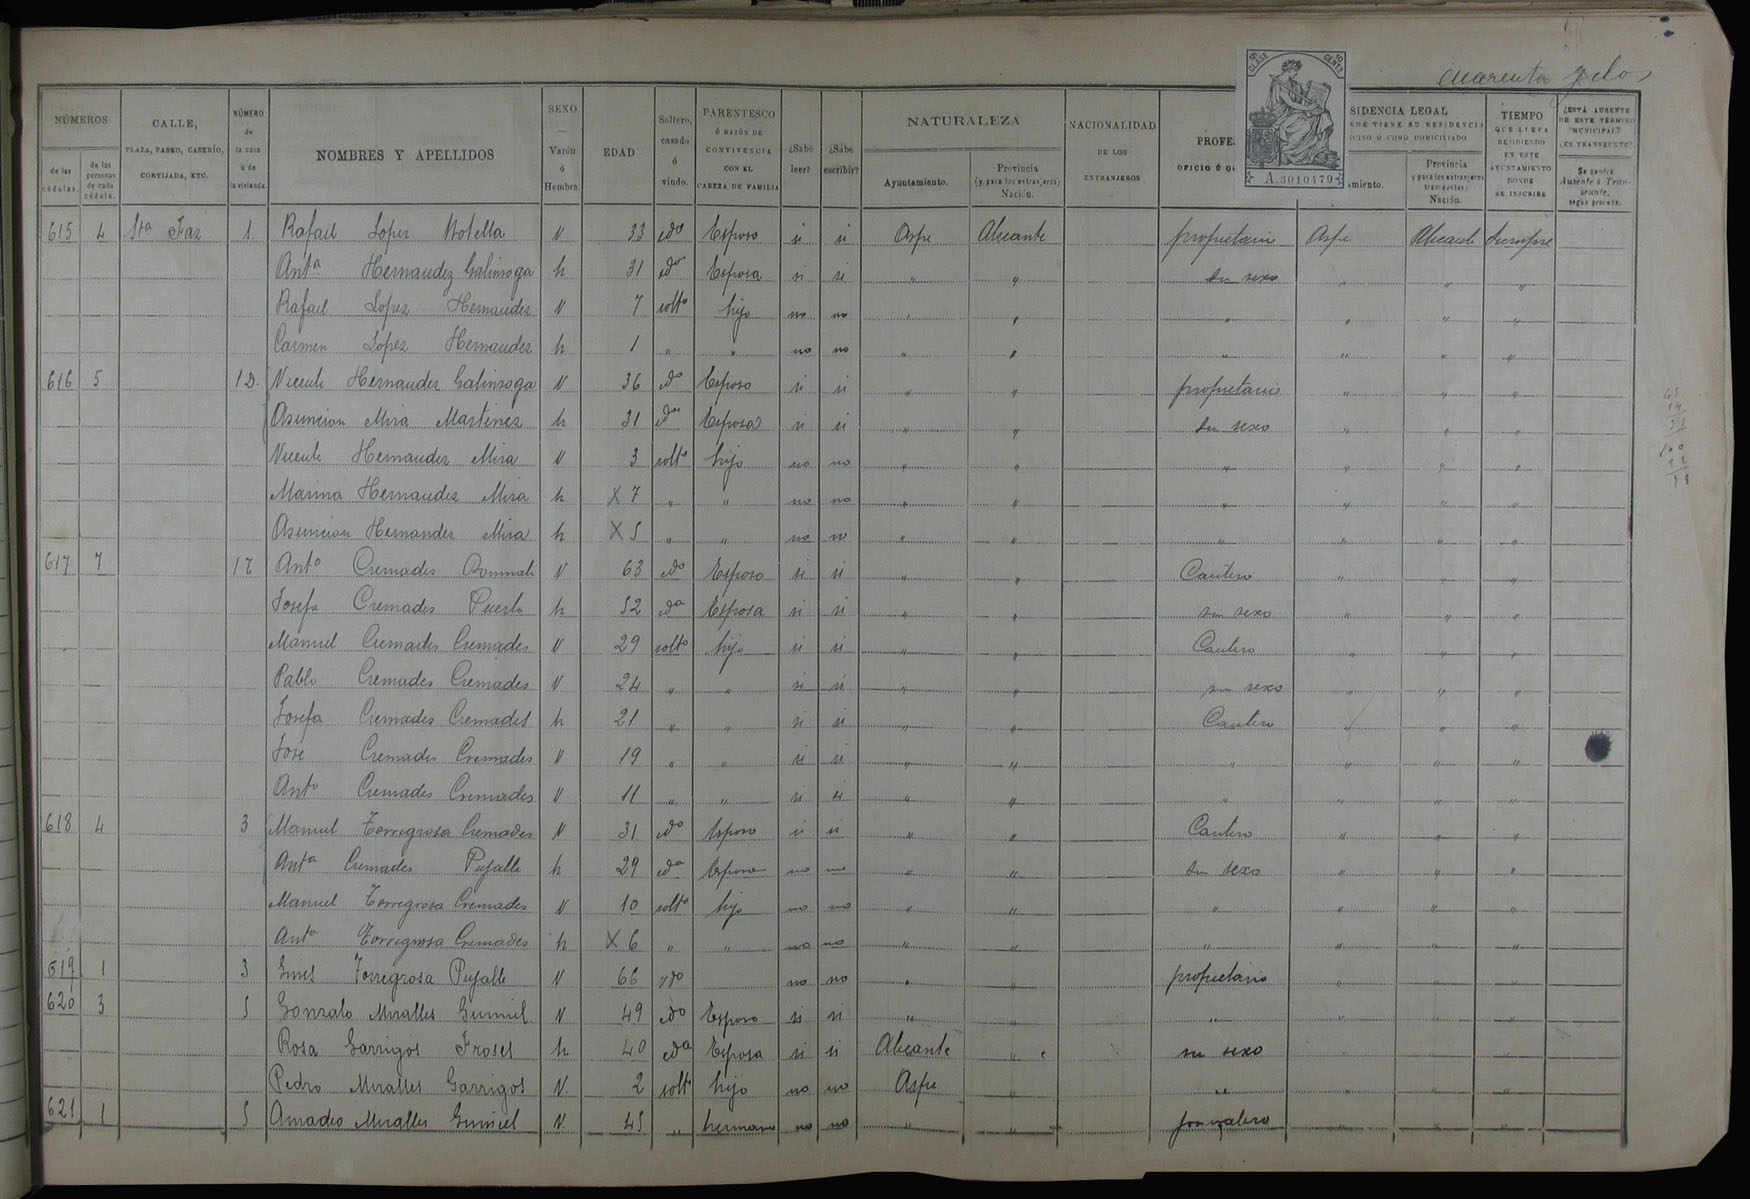 cuarenta y dos
DE CLASE 10 CENTS
A.3010479
NÚMEROS
de las cédulas.
de las personas de cada cédula.
CALLE, PLAZA, PASEO, CASERÍO, CORTIJADA, ETC.
NÚMERO de la casa ó de la vivienda.
NOMBRES Y APELLIDOS
SEXO — Varón ó Hembra.
EDAD
Soltero, casado ó viudo.
PARENTESCO Ó RAZÓN DE CONVIVENCIA CON EL CABEZA DE FAMILIA
¿Sabe leer?
¿Sabe escribir?
NATURALEZA
Ayuntamiento.
Provincia (y para los extranjeros) Nación.
NACIONALIDAD DE LOS EXTRANJEROS
PROFE
OFICIO Ú O
SIDENCIA LEGAL
NDE TIENE SU RESIDENCIA
CINO Ó COMO DOMICILIADO
miento.
Provincia y para los extranjeros transeuntes) Nación.
TIEMPO QUE LLEVA RESIDIENDO EN ESTE AYUNTAMIENTO DONDE SE INSCRIBE
¿ESTÁ AUSENTE DE ESTE TÉRMINO MUNICIPAL? ¿ES TRANSEUNTE?
Se pondrá Ausente ó Transeunte, según proceda.
615 4 Sta Faz 1 Rafael Lopez Botella V 33 cdo Esposo si si Aspe Alicante propietario Aspe Alicante siempre
Anta Hernandez Galinsoga h 31 cda Esposa si si " " su sexo " " "
Rafael Lopez Hernandez V 7 solto hijo no no " " " " " "
Carmen Lopez Hernandez h 1 " " no no " " " " " "
616 5 1 D. Vicente Hernandez Galinsoga V 36 cdo Esposo si si " " propietario " " "
Asuncion Mira Martinez h 31 cda Esposa si si " " su sexo " " "
Vicente Hernandez Mira V 3 solto hijo no no " " " " " "
Marina Hernandez Mira h X 7 " " no no " " " " " "
Asuncion Hernandez Mira h X 5 " " no no " " " " " "
617 7 Anto Cremades V 63 cdo Esposo si si " " Cantero " " "
Josefa Cremades Puerto h 52 cda Esposa si si " " su sexo " " "
Manuel Cremades Cremades V 29 solto hijo si si " " Cantero " " "
Pablo Cremades Cremades V 24 " " si si " " su sexo " " "
Josefa Cremades Cremades h 21 " " si si " " Cantero " " "
Jose Cremades Cremades V 19 " " si si " " " " " "
Anto Cremades Cremades V 11 " " si si " " " " " "
618 4 3 Manuel Torregrosa Cremades V 31 cdo Esposo si si " " Cantero " " "
Anta Cremades Pujalte h 29 cda Esposa no no " " su sexo " " "
Manuel Torregrosa Cremades V 10 solto hijo no no " " " " " "
Anta Torregrosa Cremades h X 6 " " no no " " " " " "
619 1 3 Gines Torregrosa Pujalte V 66 vdo no no " " propietario " " "
620 3 5 Gonzalo Miralles V 49 cdo Esposo si si " " " " " "
Rosa Garrigos h 40 cda Esposa si si Alicante " su sexo " " "
Pedro Miralles Garrigos V 2 solto hijo no no Aspe " " " " "
621 1 5 Amadeo Miralles V 45 " hermano no no " " jornalero " " "